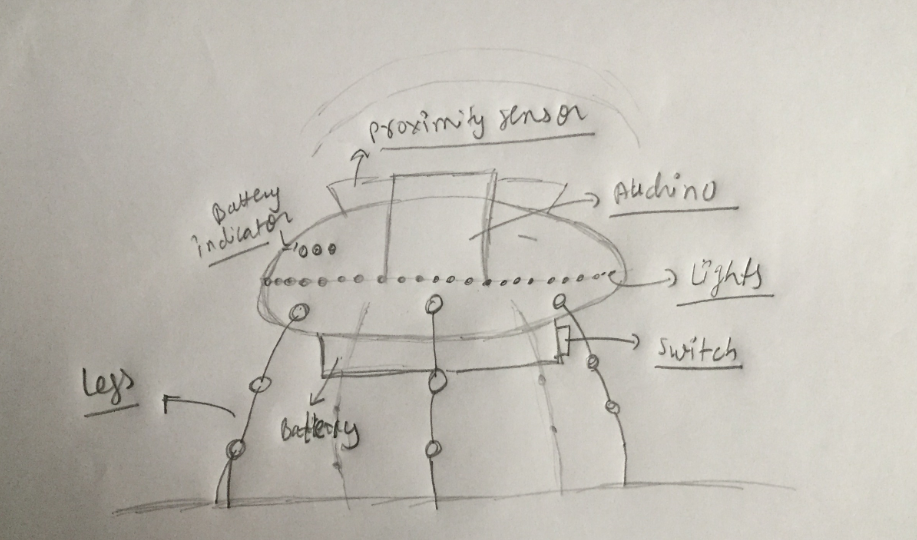 Proximity sensor
Battery
indicator
Audhino
Lights
Switch
Legs
Battery